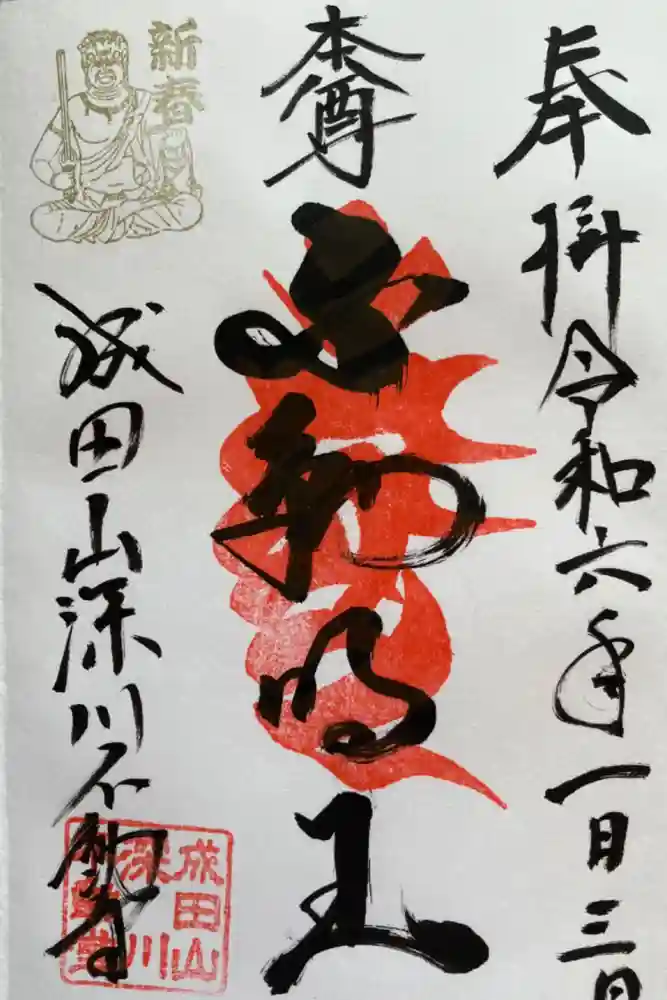 奉拝 令和六年一月三日
本尊 不動明王
新春
成田山深川不動尊
成田山
深川
不動堂